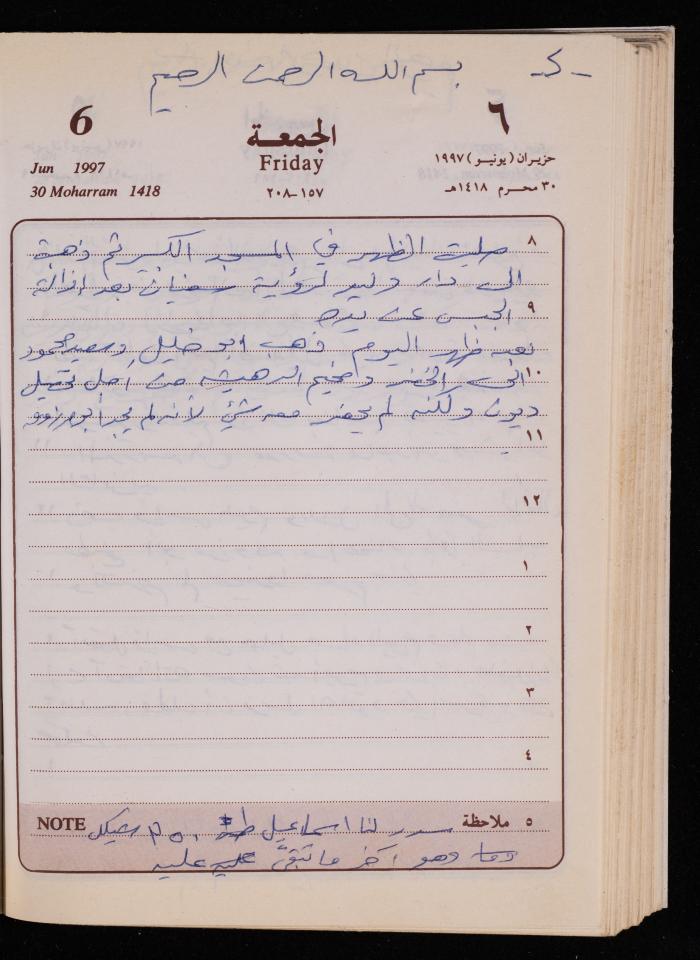 بسم الله الرحمن الرحيم
6
٦
الجمعة
Friday
Jun 1997
30 Moharram 1418
حزيران (يونيو) ١٩٩٧
٣٠ محرم ١٤١٨هـ
١٥٧-٢٠٨
٨
صليت الظهر في المسجد الكبير ثم ذهبت
الى دار وليد لرؤية بعد ازالة
٩
الجبس عن يده
ظهر اليوم ذهب ابو خليل وسعيد محمود
١٠
الى الخضر ومخيم الدهيشه من أجل تحصيل
ديون ولكنه لم يحضر معه شيئ لأنه لم يجد
١١
١٢
١
٢
٣
٤
NOTE
ملاحظة ٥
سدد لنا اسماعيل شيكل
وهو آخر ما تبقى عليه